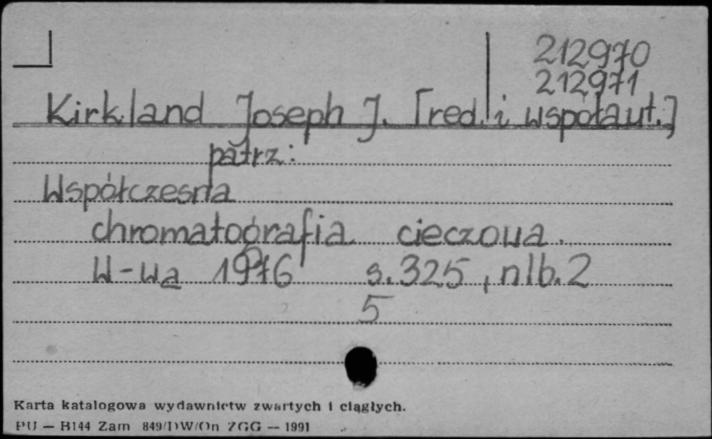 212970
212971
Kirkland Joseph J. [red. i współaut.]
patrz:
Współczesna
chromatografia cieczowa.
W-wa 1976 s. 325, nlb. 2
5
Karta katalogowa wydawnictw zwartych i ciągłych.
PU — B144 Zam 849/DW/On ZGG — 1991